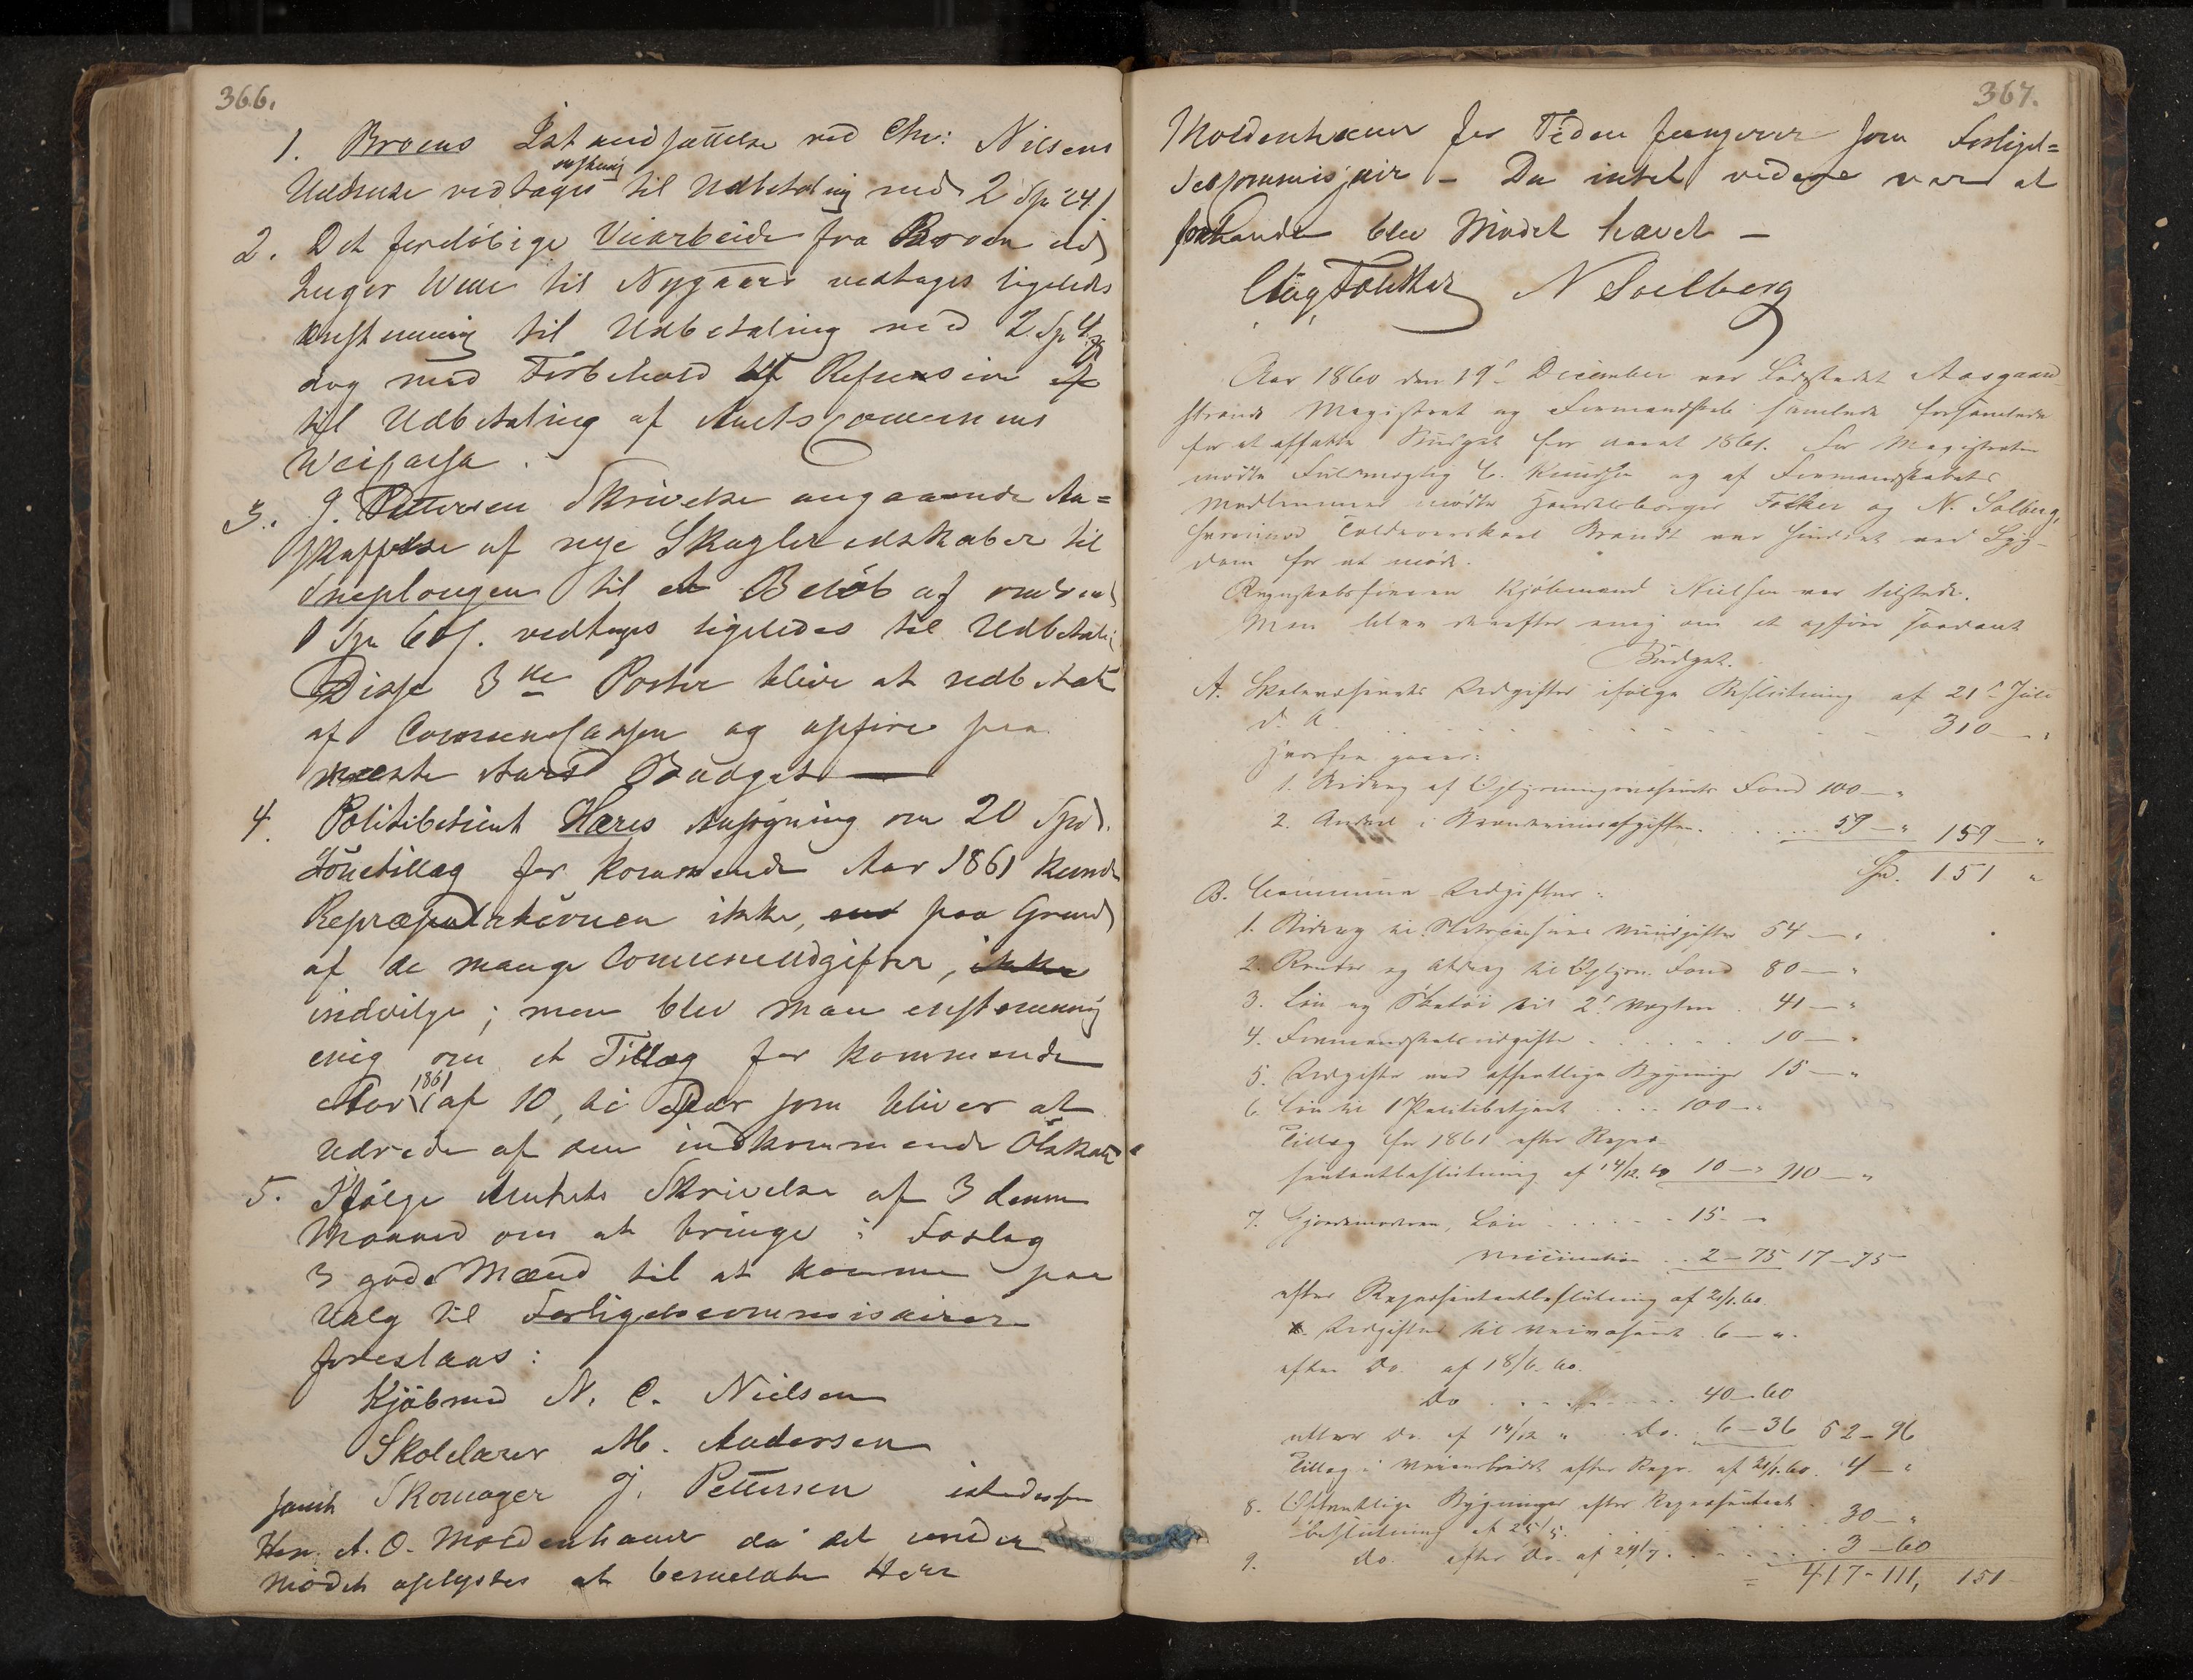 366.
1. Broens Istandsættelse ved Chr: Nilsens
enstemig
vedtages til Udbetaling med 2 Sp 24
2. Det foreløbige Veiarbeide fra Broen ved
til Nygaard vedtages ligeledes
enstemmig til Udbetaling med 2 Sp
dog med Forbehold af Refusion af
til Udbetaling af Amtscommunens
Veicassa.
3. J. Pettersen Skrivelse angaaende An=
skaffelse af nye til
Sneplougen til et Beløb af
1 Sp 60 s. vedtages ligeledes til Udbetali
Disse 3de Poster blive at udbetale
af Communecassen og opføre paa
næste Aars Budget —
4. Politibetient Høres Ansøgning om 20 Spd.
Lønetillæg for kommende Aar 1861 kunde
Repræsentationen ikke, paa Grund
af de mange Communeudgifter, ikke
indvilge; men blev man enstemmig
enig om et Tillæg for kommende
1861
Aar af 10, ti Spdr som bliver at
udrede af den indkommende Ølskat
5. Ifølge Amtets Skrivelse af 3 denne
Maaned om at bringe i Forslag
3 gode Mænd til at komme paa
Valg til Forligelsecommisairer
foreslaaes:
Kjøbmd N. C. Nielsen
Skolelærer M. Andersen
samt Skomager J. Pettersen istedetfor
Herr A. O. Moldenhauer da det under
Mødet oplystes at bemeldte Herr
367.
Moldenhauer for Tiden fungerer som Forligel=
sescommisair – Da intet videre var at
forhandle blev Mødet hævet —
N Soelberg
Aar 1860 den 19de December var Ladestedet Aasgaard
strands Magistrat og Formandskab samlede
for at affatte Budget for Aaret 1861. For Magistraten
mødte Fuldmægtig C. Knudsen og af Formandskabets
Medlemmer mødte Handelsborger Folker og N. Solberg,
hvorimod Brandt var hindret ved Syg-
dom for at møde.
Regnskabsføreren Kjøbmand Nielsen var tilstede.
Man blev derefter enig om at opføre saadant
Budget.
A. Skolevæsenets Udgifter ifølge Beslutning af 21de Juli
d. A. 310 — "
Hvorfra gaaer:
1. Bidrag af Oplysningsvæsenets Fond 100 — "
2. Andel i Brændevinsafgiften 59 — " 159 — "
Spd. 151 "
B. Commune Udgifter:
1. Bidrag til 54 — "
2. Renter og Afdrag til Oplysn. Fond 80 — "
3. Løn og Skotøi til 2de Vægtere 41 — "
4. Formandskabsudgifter 10 — "
5. Udgifter ved offentlige Bygninger 15 — "
6. Løn til 1 Politibetjent 100 — "
Tillæg for 1861 efter Repræ-
sentantbeslutning af 14/12. 60 10 — " 110 — "
7. Gjordemoderen, Løn 15 — "
Vaccination 2 – 75 17 – 75
efter Repræsentantbeslutning af 21/1. 60.
Udgifter til Veivæsenet 6 — ".
efter Do. af 18/6. 60.
Do 40 – 60
Do. af 14/12 " Do. 6 – 36 52 – 96
Tillæg i efter Repr. af 21/1. 60. 4 — "
8. Offentlige Bygninger efter Repræsentant
beslutning af 25/5 30 — "
9. Do. efter Do. af 24/7 3 – 60
417 – 111, 151